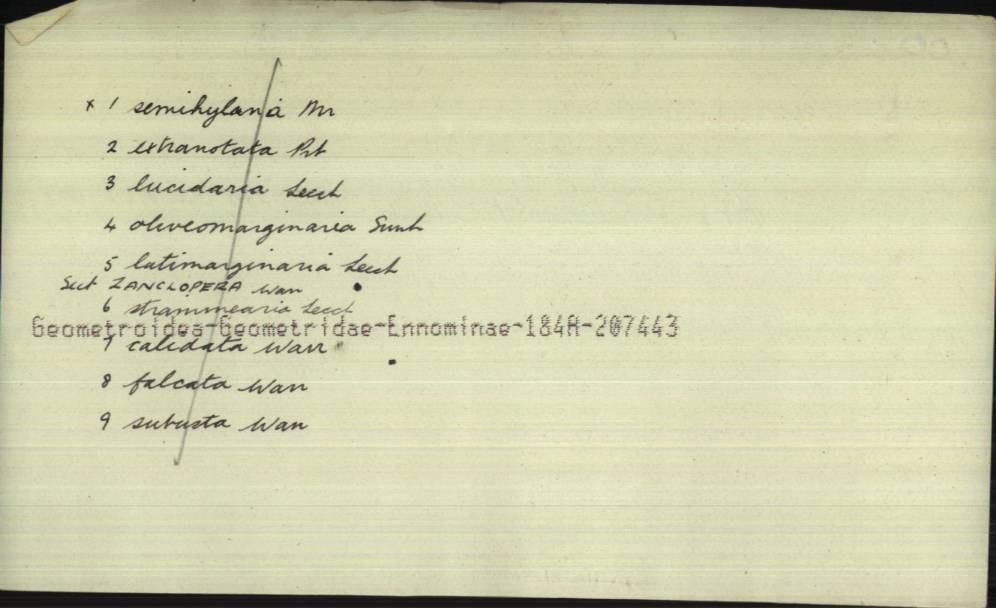 x 1 semihylana Mr
2 extranotata Prt
3 lucidaria Leech
4 oliveomarginaria Swnh
5 latimarginaria Leech
Sect ZANCLOPERA Warr
6 straminearia Leech
Geometroidea-Geometridae-Ennominae-184A-207443
7 calidata Warr
8 falcata Warr
9 subusta Warr